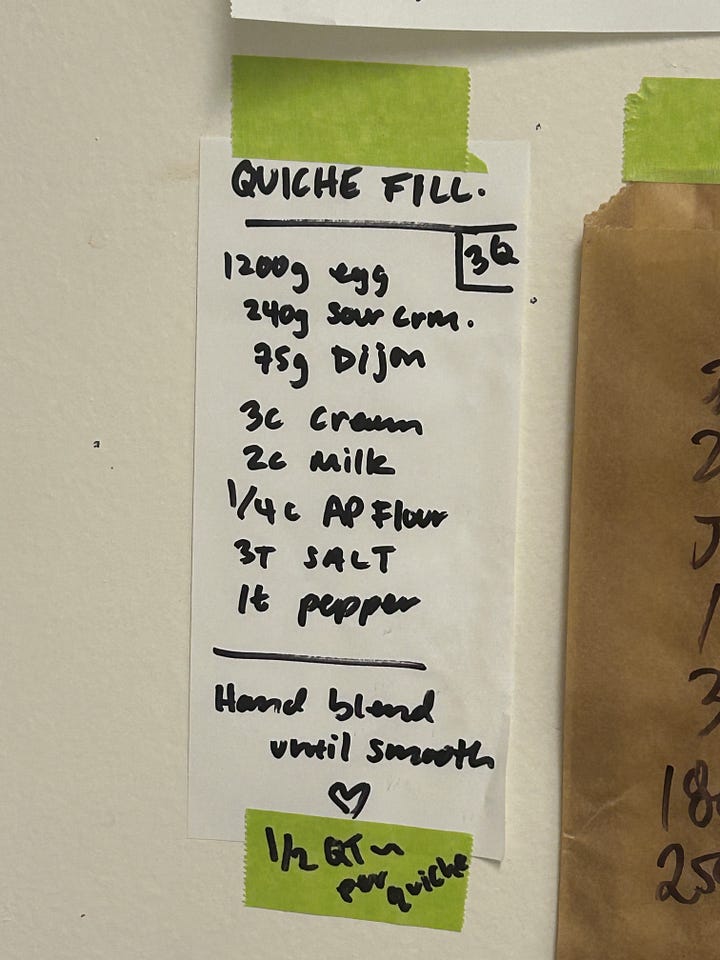 QUICHE FILL.
3Q
1200g egg
240g sour crm.
75g Dijon
3c cream
2c milk
1/4 c AP Flour
3T SALT
1t pepper
Hand blend
until smooth
1/2 QT ~
per quiche
2
J
1
3
18
25